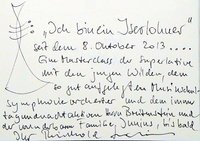 "Ich bin ein Iserlohner"
seit dem 8. Oktober 2013....
Eine Masterclass der Superlative
mit den jungen Wilden, dem
so gut aufgelegten
Symphonieorchester und dem immer
Herrn Breitenstein und
der wunderbaren Familie, Junius, bis bald
Ihr